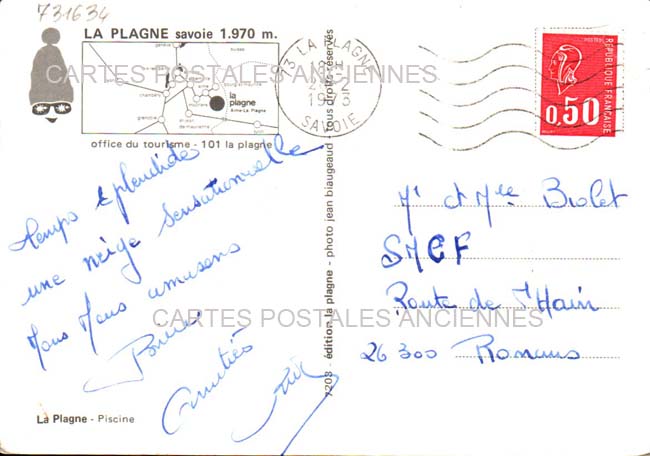 731634
LA PLAGNE savoie 1.970 m.
genève
suisse
chambéry
bourg-st-maurice
moutiers
la plagne
Aime-La Plagne
grenoble
st-jean de-maurienne
turin
office du tourisme - 101 la plagne
73 LA PLAGNE
1973
SAVOIE
POSTES
RÉPUBLIQUE FRANÇAISE
0,50
CARTES POSTALES ANCIENNES
temps splendide
une neige sensationnelle
Nous nous amusons
Amitiés
7203 - édition la plagne - photo jean biaugeaud - tous droits réservés
Mr et Mlle Biolet
SMCF
Route de St Hain
26300 Romans
CARTES POSTALES ANCIENNES
La Plagne - Piscine